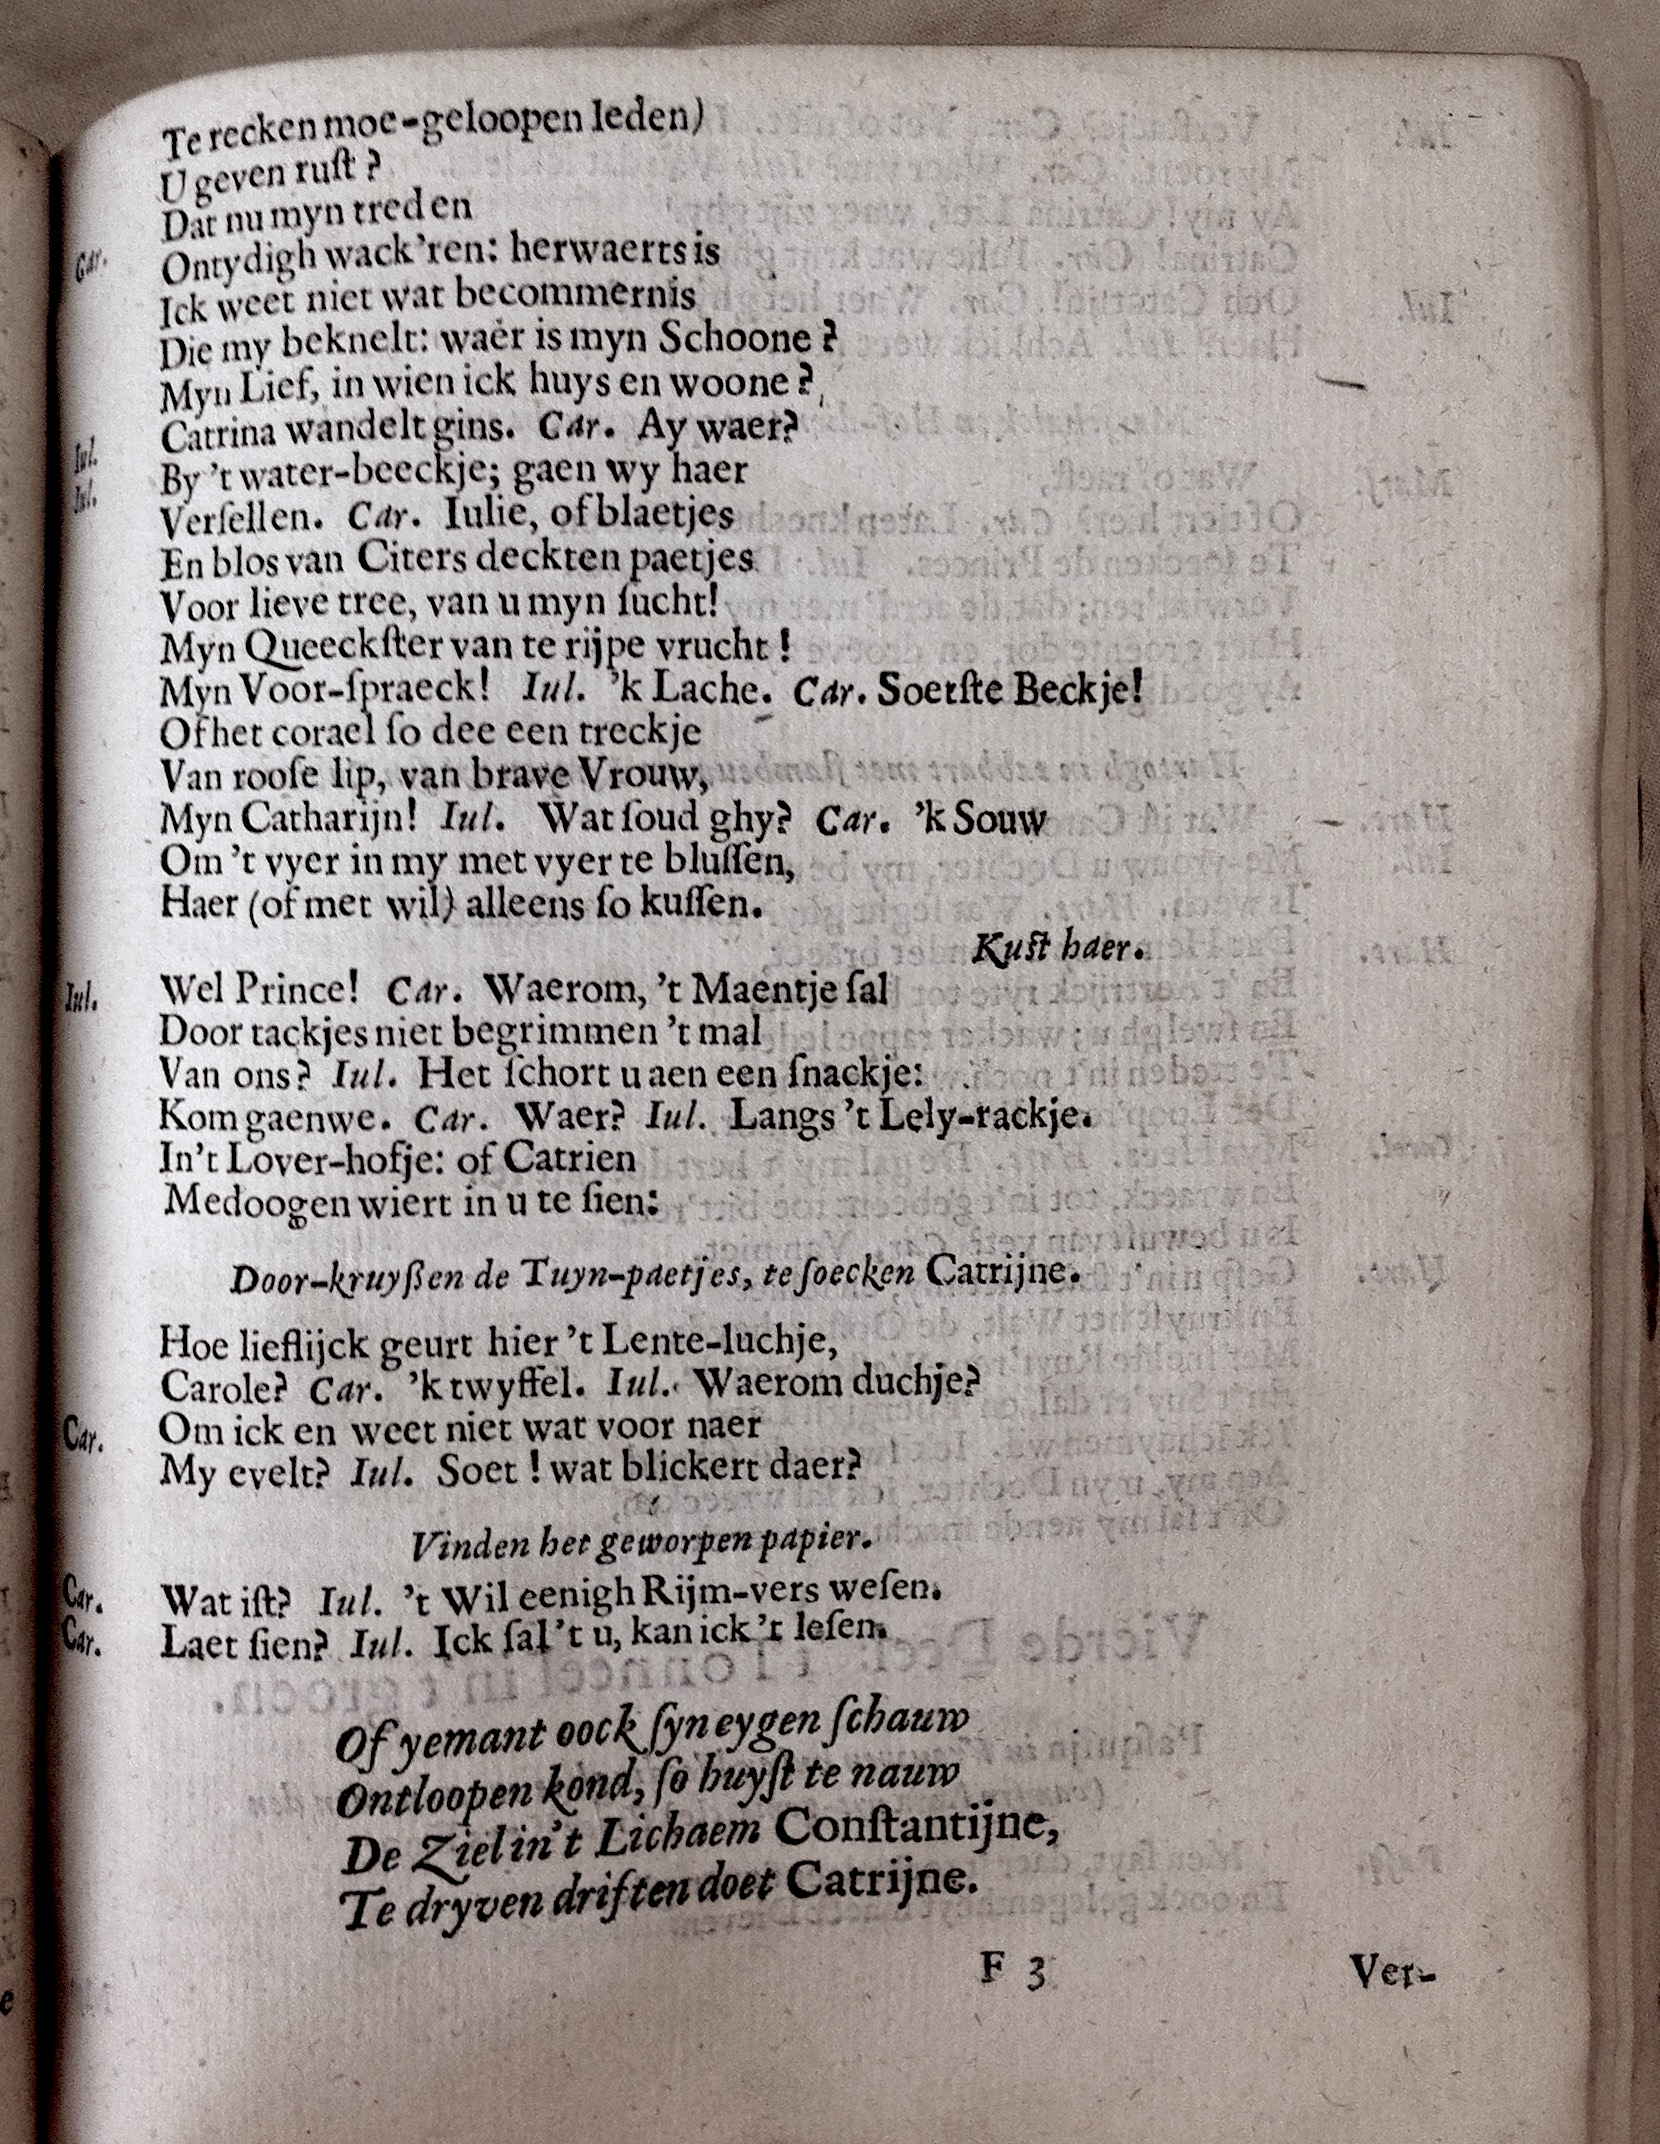 Te recken moe-geloopen leden)
U geven ruſt?
Dat nu myn treden
Car. Ontydigh wack'ren: herwaerts is
Ick weet niet wat becommernis
Die my beknelt: waer is myn Schoone?
Myn Lief, in wien ick huys en woone?
Iul. Catrina wandelt gins. Car. Ay waer?
Iul. By 't water-beeckje; gaen wy haer
Verſellen. Car. Iulie, of blaetjes
En blos van Citers deckten paetjes
Voor lieve tree, van u myn ſucht!
Myn Queeckſter van te rijpe vrucht!
Myn Voor-ſpraeck! Iul. 'k Lache. Car. Soetſte Beckje!
Of het corael ſo dee een treckje
Van rooſe lip, van brave Vrouw,
Myn Catharijn! Iul. Wat ſoud ghy? Car. 'k Souw
Om 't vyer in my met vyer te bluſſen,
Haer (of met wil) alleens ſo kuſſen.
Kuſt haer.
Iul. Wel Prince! Car. Waerom, 't Maentje ſal
Door tackjes niet begrimmen 't mal
Van ons? Iul. Het ſchort u aen een ſnackje:
Kom gaenwe. Car. Waer? Iul. Langs 't Lely-rackje.
In't Lover-hofje: of Catrien
Medoogen wiert in u te ſien:
Door-kruyßen de Tuyn-paetjes, te ſoecken Catrijne.
Hoe lieflijck geurt hier 't Lente-luchje,
Carole? Car. 'k twyffel. Iul. Waerom duchje?
Car. Om ick en weet niet wat voor naer
My evelt? Iul. Soet! wat blickert daer?
Vinden het geworpen papier.
Car. Wat iſt? Iul. 't Wil eenigh Rijm-vers weſen.
Car. Laet ſien? Iul. Ick ſal 't u, kan ick 't leſen.
Of yemant oock ſyn eygen ſchauw
Ontloopen kond, ſo huyſt te nauw
De Ziel in't Lichaem Conſtantijne,
Te dryven driften doet Catrijne.
F 3 Ver-